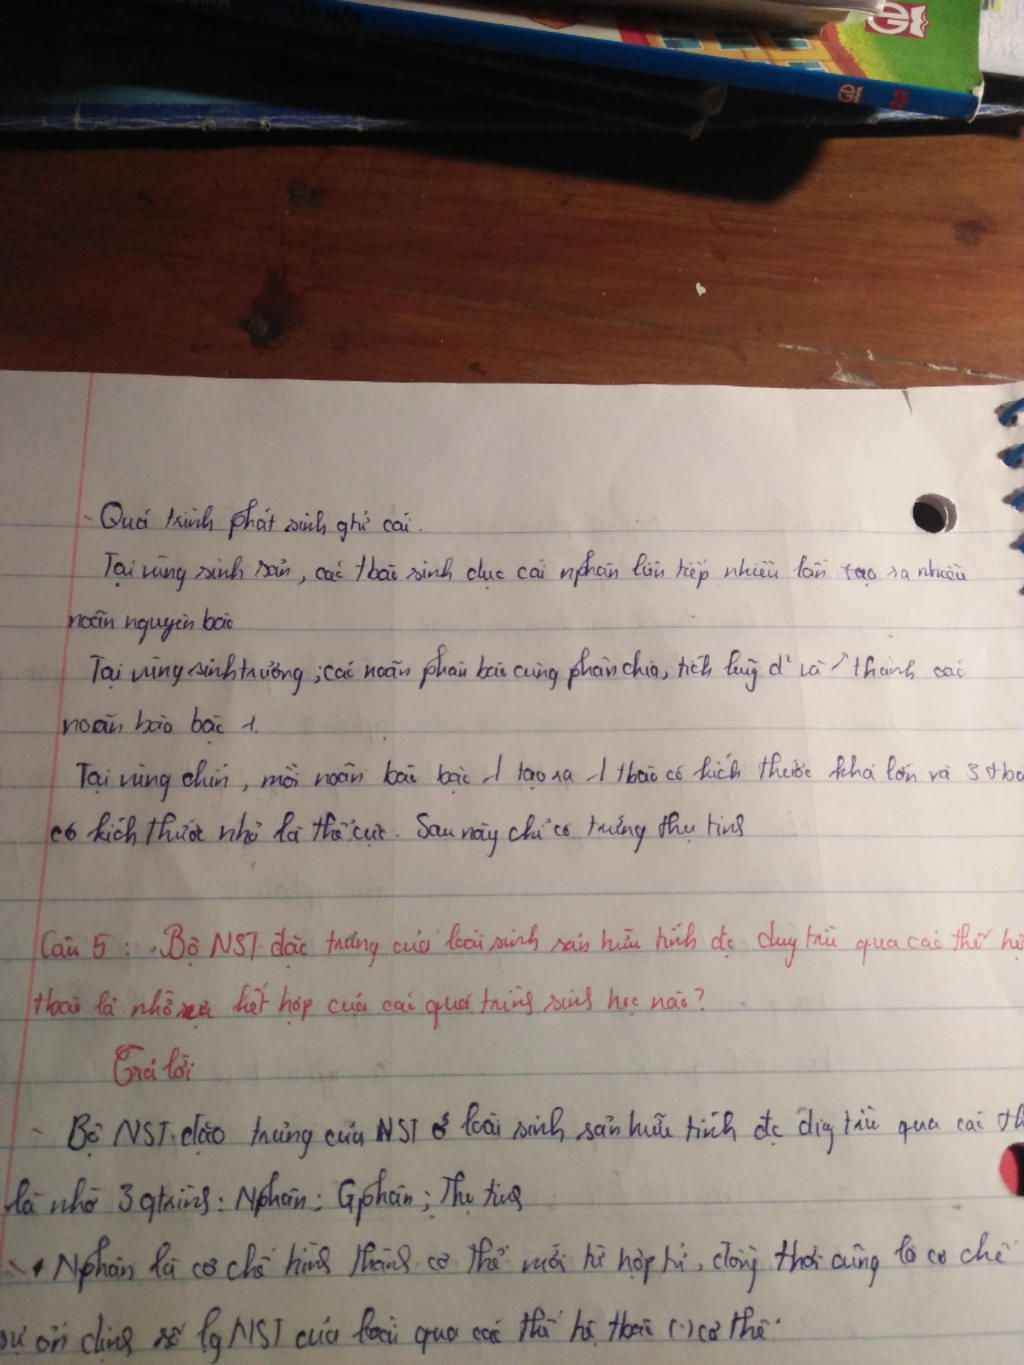 - Quá trình phát sinh gtử cái.
Tại vùng sinh sản, các tbào sinh dục cái nphân liên tiếp nhiều lần tạo ra nhiều
noãn nguyên bào
Tại vùng sinh trưởng; các noãn phân bào cùng phân chia, tích luỹ d² và ↗ thành các
noãn bào bậc 1.
Tại vùng chín, mỗi noãn bào bậc 1 tạo ra 1 tbào có kích thước khá lớn và 3 tbà
có kích thước nhỏ là thể cực. Sau này chỉ có trứng thụ tinh
Câu 5: Bộ NST đặc trưng của loài sinh sản hữu tính đc duy trì qua các thế hệ
tbào là nhờ sự kết hợp của các quá trình sinh học nào?
Trả lời
- Bộ NST đặc trưng của NST ở loài sinh sản hữu tính đc duy trì qua các th
là nhờ 3 qtrình: Nphân; Gphân; Thụ tinh
Nphân là cơ chế hình thành cơ thể mới từ hợp tử, đồng thời cũng là cơ chế
sự ổn định số lg NST của loài qua các thế hệ tbào (.) cơ thể.